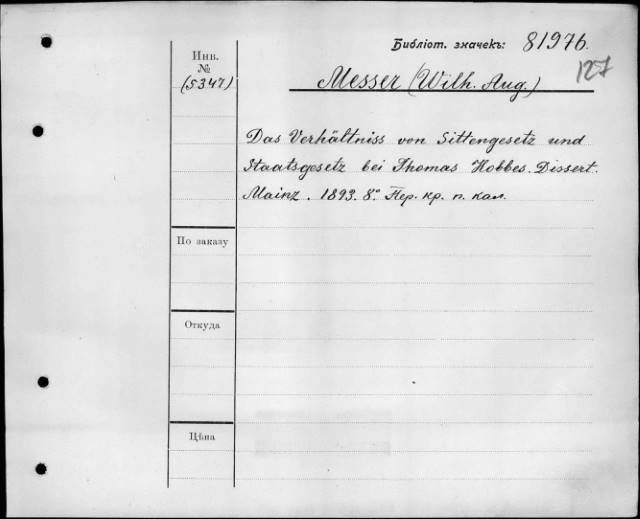 Библіот. значекъ: 81976.
127
Инв.
№
(5347)
Messer (Wilh. Aug.)
Das Verhältniss von Sittengesetz und
Staatsgesetz bei Thomas Hobbes. Dissert.
Mainz. 1893. 8°. Пер. кр. п. кал.
По заказу
Откуда
Цѣна